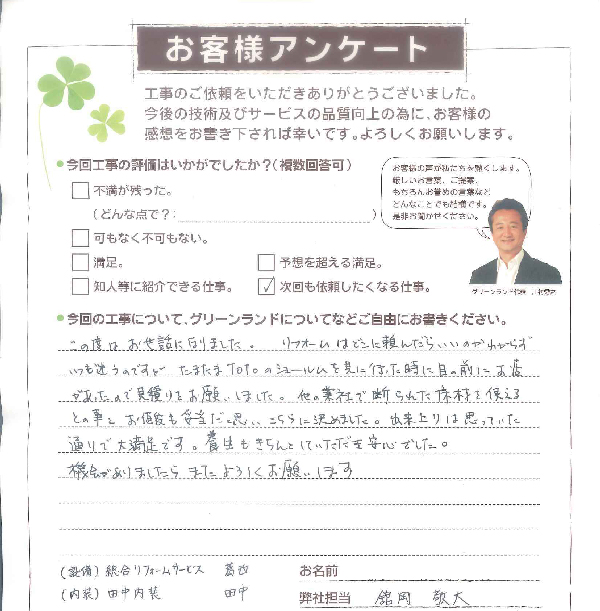 お客様アンケート
工事のご依頼をいただきありがとうございました。
今後の技術及びサービスの品質向上の為に、お客様の
感想をお書き下されば幸いです。よろしくお願いします。
●今回工事の評価はいかがでしたか?(複数回答可)
お客様の声が私たちを熱くします。
厳しいお言葉、ご提案、
もちろんお誉めの言葉など
どんなことでも結構です。
是非お聞かせください。
□不満が残った。
(どんな点で?: )
□可もなく不可もない。
□満足。 □予想を超える満足。
□知人等に紹介できる仕事。 ☑次回も依頼したくなる仕事。
グリーンランド代表
●今回の工事について、グリーンランドについてなどご自由にお書きください。
この度はお世話になりました。 リフォームはどこに頼んだらいいのかわからず
いつも迷うのですが たまたまTOTOのショールームを見に行った時に目の前にお店
があったので見積りをお願いしました。他の業社で断られた床材を使える
との事と お値段も妥当だと思い こちらに決めました。出来上りは思っていた
通りで大満足です。養生もきちんとしていただき安心でした。
機会がありましたら またよろしくお願いします
(設備) 総合リフォームサービス 葛西 お名前
(内装) 田中内装 田中 弊社担当 舘岡 敬大